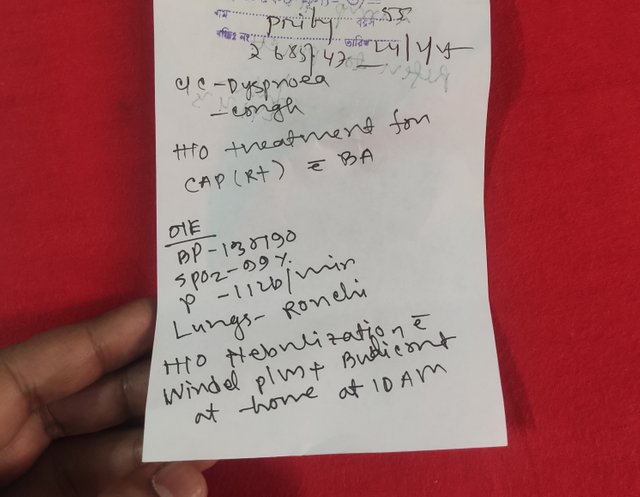 নাম Prity বয়স 55
রেজিঃ নং 2685/42 তারিখ
c/c - Dyspnoea
- cough
H/O treatment for
CAP (Rt) c̄ BA
O/E
BP - 130/90
SPO2 - 99%
P - 112b/min
Lungs - Ronchi
H/O Nebulization c̄
Windel plus + Budicort
at home at 10 AM